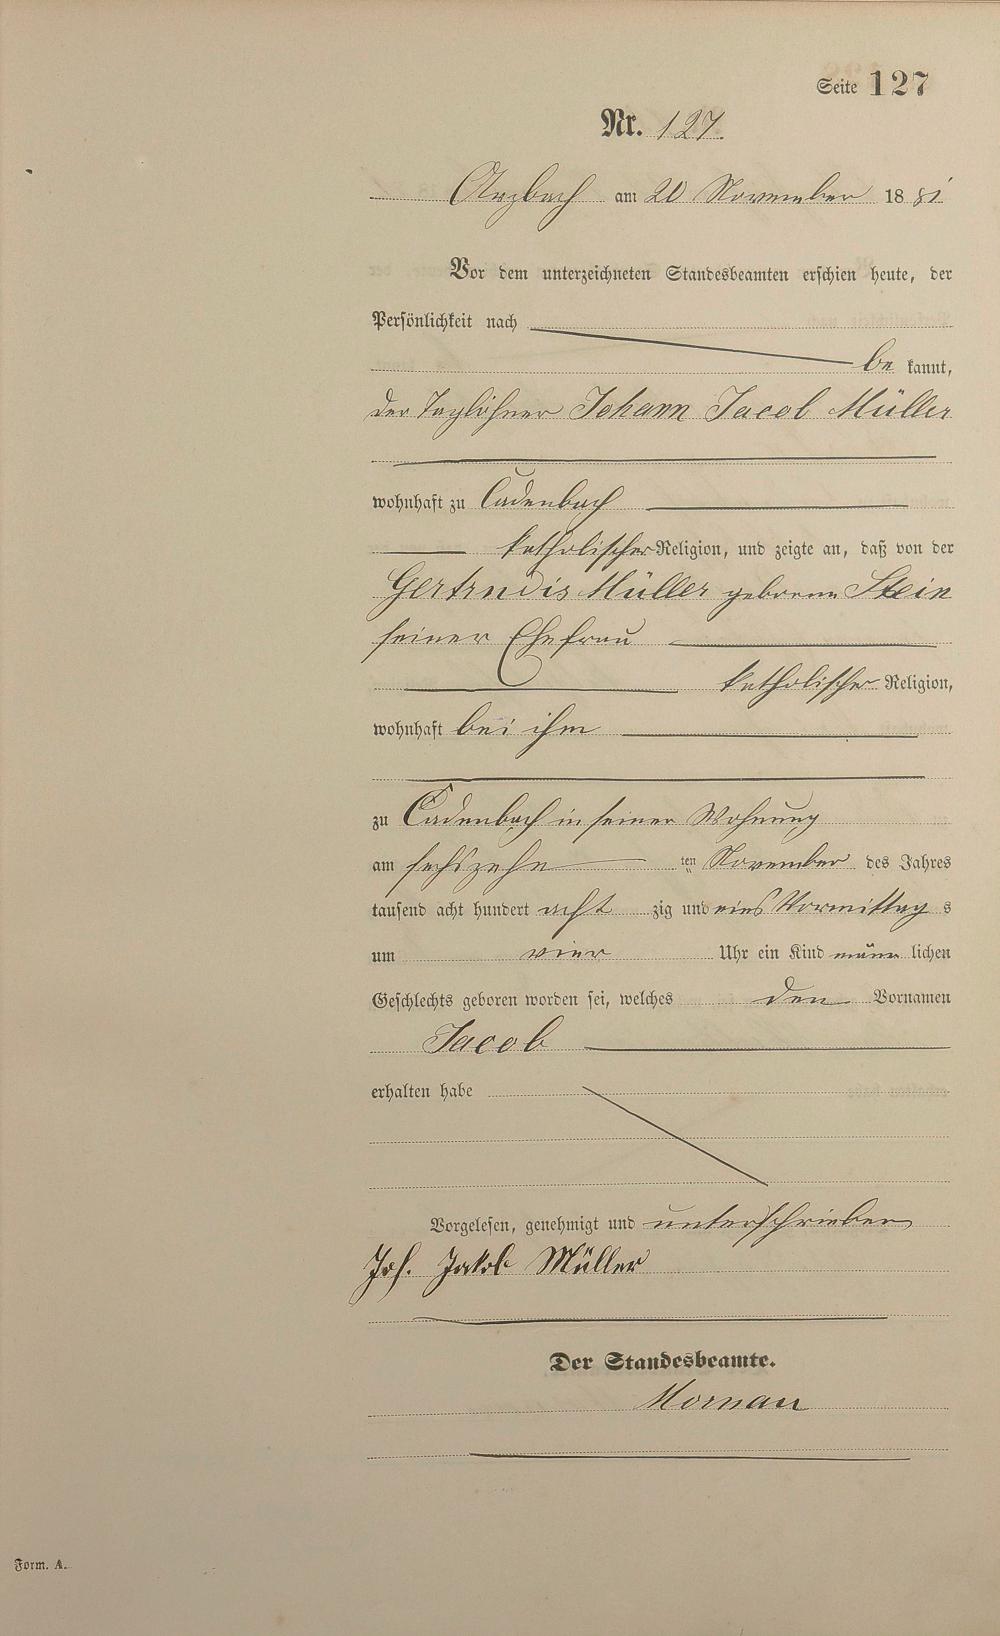 Seite 127
Nr. 127.
Arzbach am 20 November 1881
Vor dem unterzeichneten Standesbeamten erschien heute, der
Persönlichkeit nach
be kannt,
der Taglöhner Johann Jacob Müller
wohnhaft zu Cadenbach
katholischer Religion, und zeigte an, daß von der
Gertrudis Müller geborene Stein
seiner Ehefrau
katholischer Religion,
wohnhaft bei ihm
zu Cadenbach in seiner Wohnung
am sechszehn ten November des Jahres
tausend acht hundert acht zig und eins Vormittag s
um vier Uhr ein Kind männ lichen
Geschlechts geboren worden sei, welches den Vornamen
Jacob
erhalten habe
Vorgelesen, genehmigt und unterschrieben
Joh. Jakob Müller
Der Standesbeamte.
Mornau
Form. A.